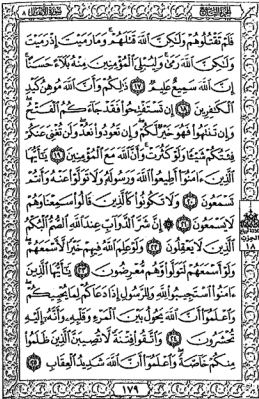 الجزء التاسع سورة الأنفال ٨
فَلَمْ تَقْتُلُوهُمْ وَلَٰكِنَّ ٱللَّهَ قَتَلَهُمْ ۚ وَمَا رَمَيْتَ إِذْ رَمَيْتَ
وَلَٰكِنَّ ٱللَّهَ رَمَىٰ ۚ وَلِيُبْلِىَ ٱلْمُؤْمِنِينَ مِنْهُ بَلَآءً حَسَنًا ۚ
إِنَّ ٱللَّهَ سَمِيعٌ عَلِيمٌ ١٧ ذَٰلِكُمْ وَأَنَّ ٱللَّهَ مُوهِنُ كَيْدِ
ٱلْكَٰفِرِينَ ١٨ إِن تَسْتَفْتِحُوا۟ فَقَدْ جَآءَكُمُ ٱلْفَتْحُ ۖ
وَإِن تَنتَهُوا۟ فَهُوَ خَيْرٌ لَّكُمْ ۖ وَإِن تَعُودُوا۟ نَعُدْ وَلَن تُغْنِىَ عَنكُمْ
فِئَتُكُمْ شَيْـًٔا وَلَوْ كَثُرَتْ وَأَنَّ ٱللَّهَ مَعَ ٱلْمُؤْمِنِينَ ١٩ يَٰٓأَيُّهَا
ٱلَّذِينَ ءَامَنُوٓا۟ أَطِيعُوا۟ ٱللَّهَ وَرَسُولَهُۥ وَلَا تَوَلَّوْا۟ عَنْهُ وَأَنتُمْ
تَسْمَعُونَ ٢٠ وَلَا تَكُونُوا۟ كَٱلَّذِينَ قَالُوا۟ سَمِعْنَا وَهُمْ
لَا يَسْمَعُونَ ٢١ إِنَّ شَرَّ ٱلدَّوَآبِّ عِندَ ٱللَّهِ ٱلصُّمُّ ٱلْبُكْمُ
ٱلَّذِينَ لَا يَعْقِلُونَ ٢٢ وَلَوْ عَلِمَ ٱللَّهُ فِيهِمْ خَيْرًا لَّأَسْمَعَهُمْ ۖ
وَلَوْ أَسْمَعَهُمْ لَتَوَلَّوا۟ وَّهُم مُّعْرِضُونَ ٢٣ يَٰٓأَيُّهَا ٱلَّذِينَ
ءَامَنُوا۟ ٱسْتَجِيبُوا۟ لِلَّهِ وَلِلرَّسُولِ إِذَا دَعَاكُمْ لِمَا يُحْيِيكُمْ ۖ
وَٱعْلَمُوٓا۟ أَنَّ ٱللَّهَ يَحُولُ بَيْنَ ٱلْمَرْءِ وَقَلْبِهِۦ وَأَنَّهُۥٓ إِلَيْهِ
تُحْشَرُونَ ٢٤ وَٱتَّقُوا۟ فِتْنَةً لَّا تُصِيبَنَّ ٱلَّذِينَ ظَلَمُوا۟
مِنكُمْ خَآصَّةً ۖ وَٱعْلَمُوٓا۟ أَنَّ ٱللَّهَ شَدِيدُ ٱلْعِقَابِ ٢٥
الحزب
١٨
١٧٩